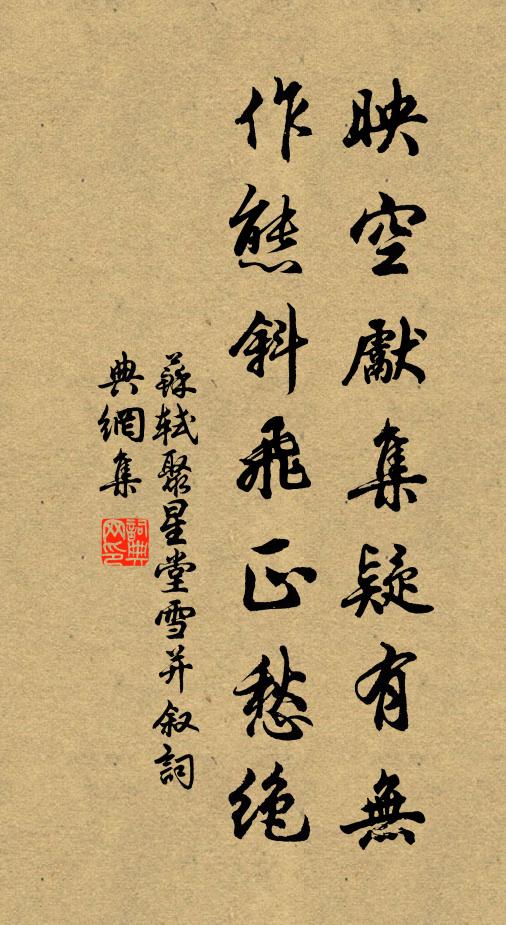 映空獻集疑有無
作態斜飛正愁絶
蘇軾聚星堂雪并叙詞
典網集
詞典
网印